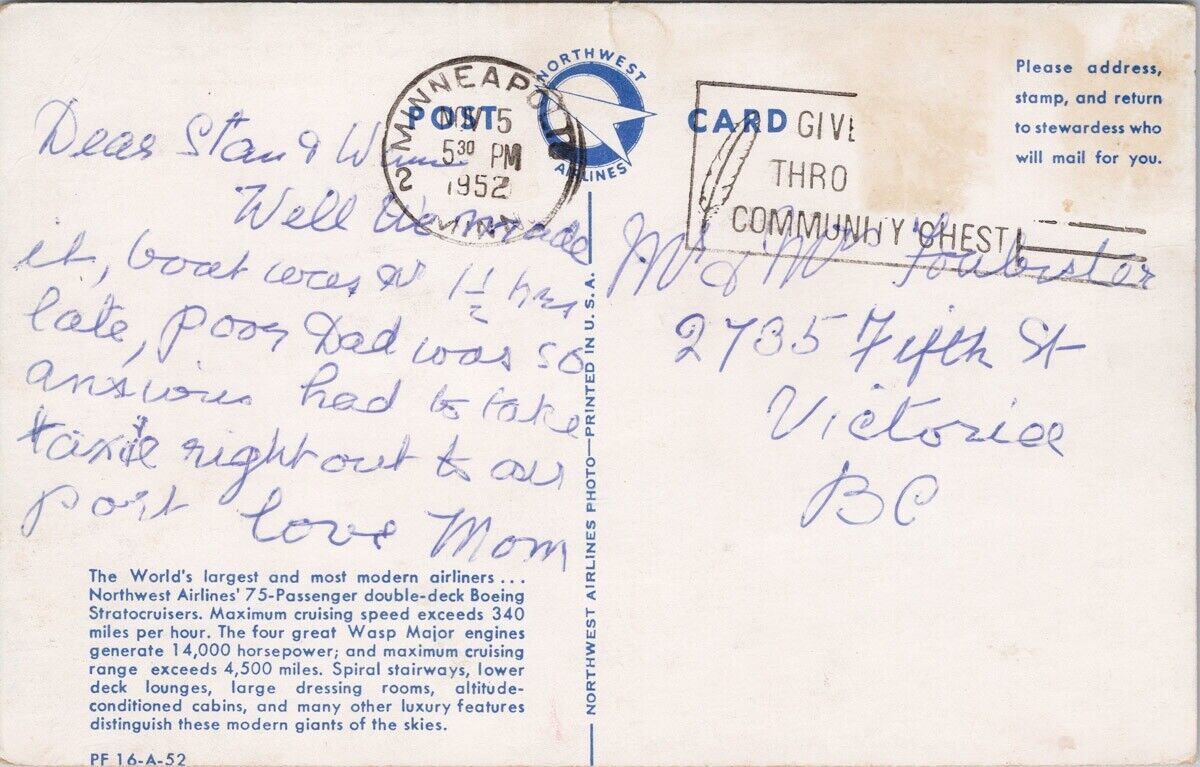 Dear Stan &
Well We made
it, boat was 1½ hrs
late, poor Dad was so
anxious had to take
taxie right out to air
port love Mom
The World's largest and most modern airliners...
Northwest Airlines' 75-Passenger double-deck Boeing
Stratocruisers. Maximum cruising speed exceeds 340
miles per hour. The four great Wasp Major engines
generate 14,000 horsepower; and maximum cruising
range exceeds 4,500 miles. Spiral stairways, lower
deck lounges, large dressing rooms, altitude-
conditioned cabins, and many other luxury features
distinguish these modern giants of the skies.
PF 16-A-52
POST CARD
NORTHWEST
AIRLINES
MINNEAPOLIS
2
NOV 5
5 30 PM
1952
MINN
GIVE
THRO
COMMUNITY CHEST
NORTHWEST AIRLINES PHOTO—PRINTED IN U.S.A.
Please address,
stamp, and return
to stewardess who
will mail for you.
Mr & Mrs Foubister
2735 Fifth St
Victoria
BC